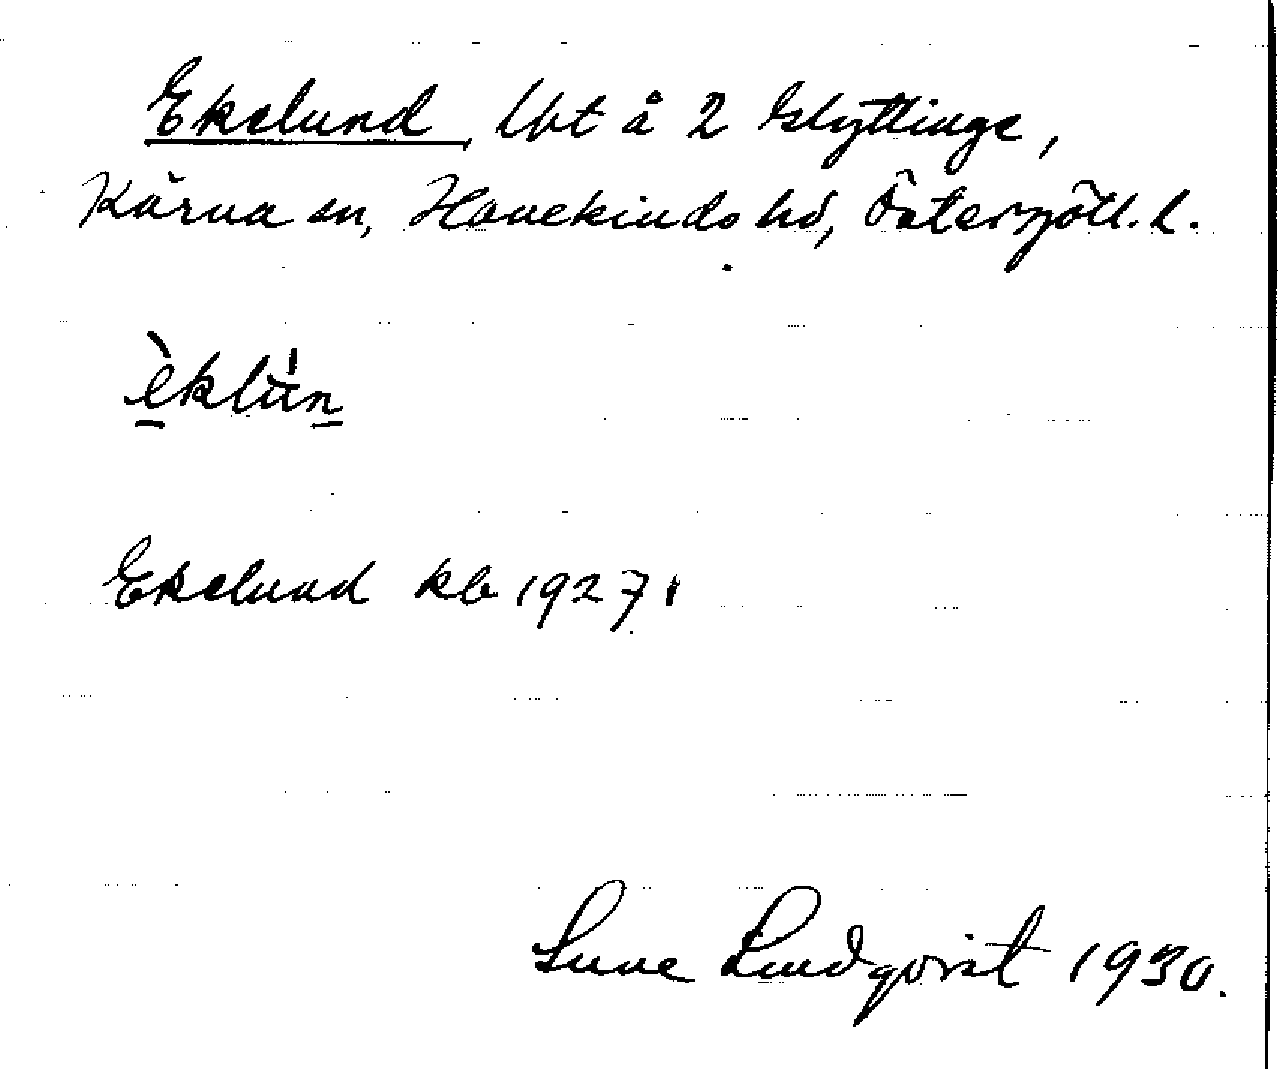 Ekelund, lht å 2 Glyttinge,
Kärna sn, Hanekinds hd, Östergötl. l.
èklùn
Ekelund kb 1927
Sune Lindqvist 1930.